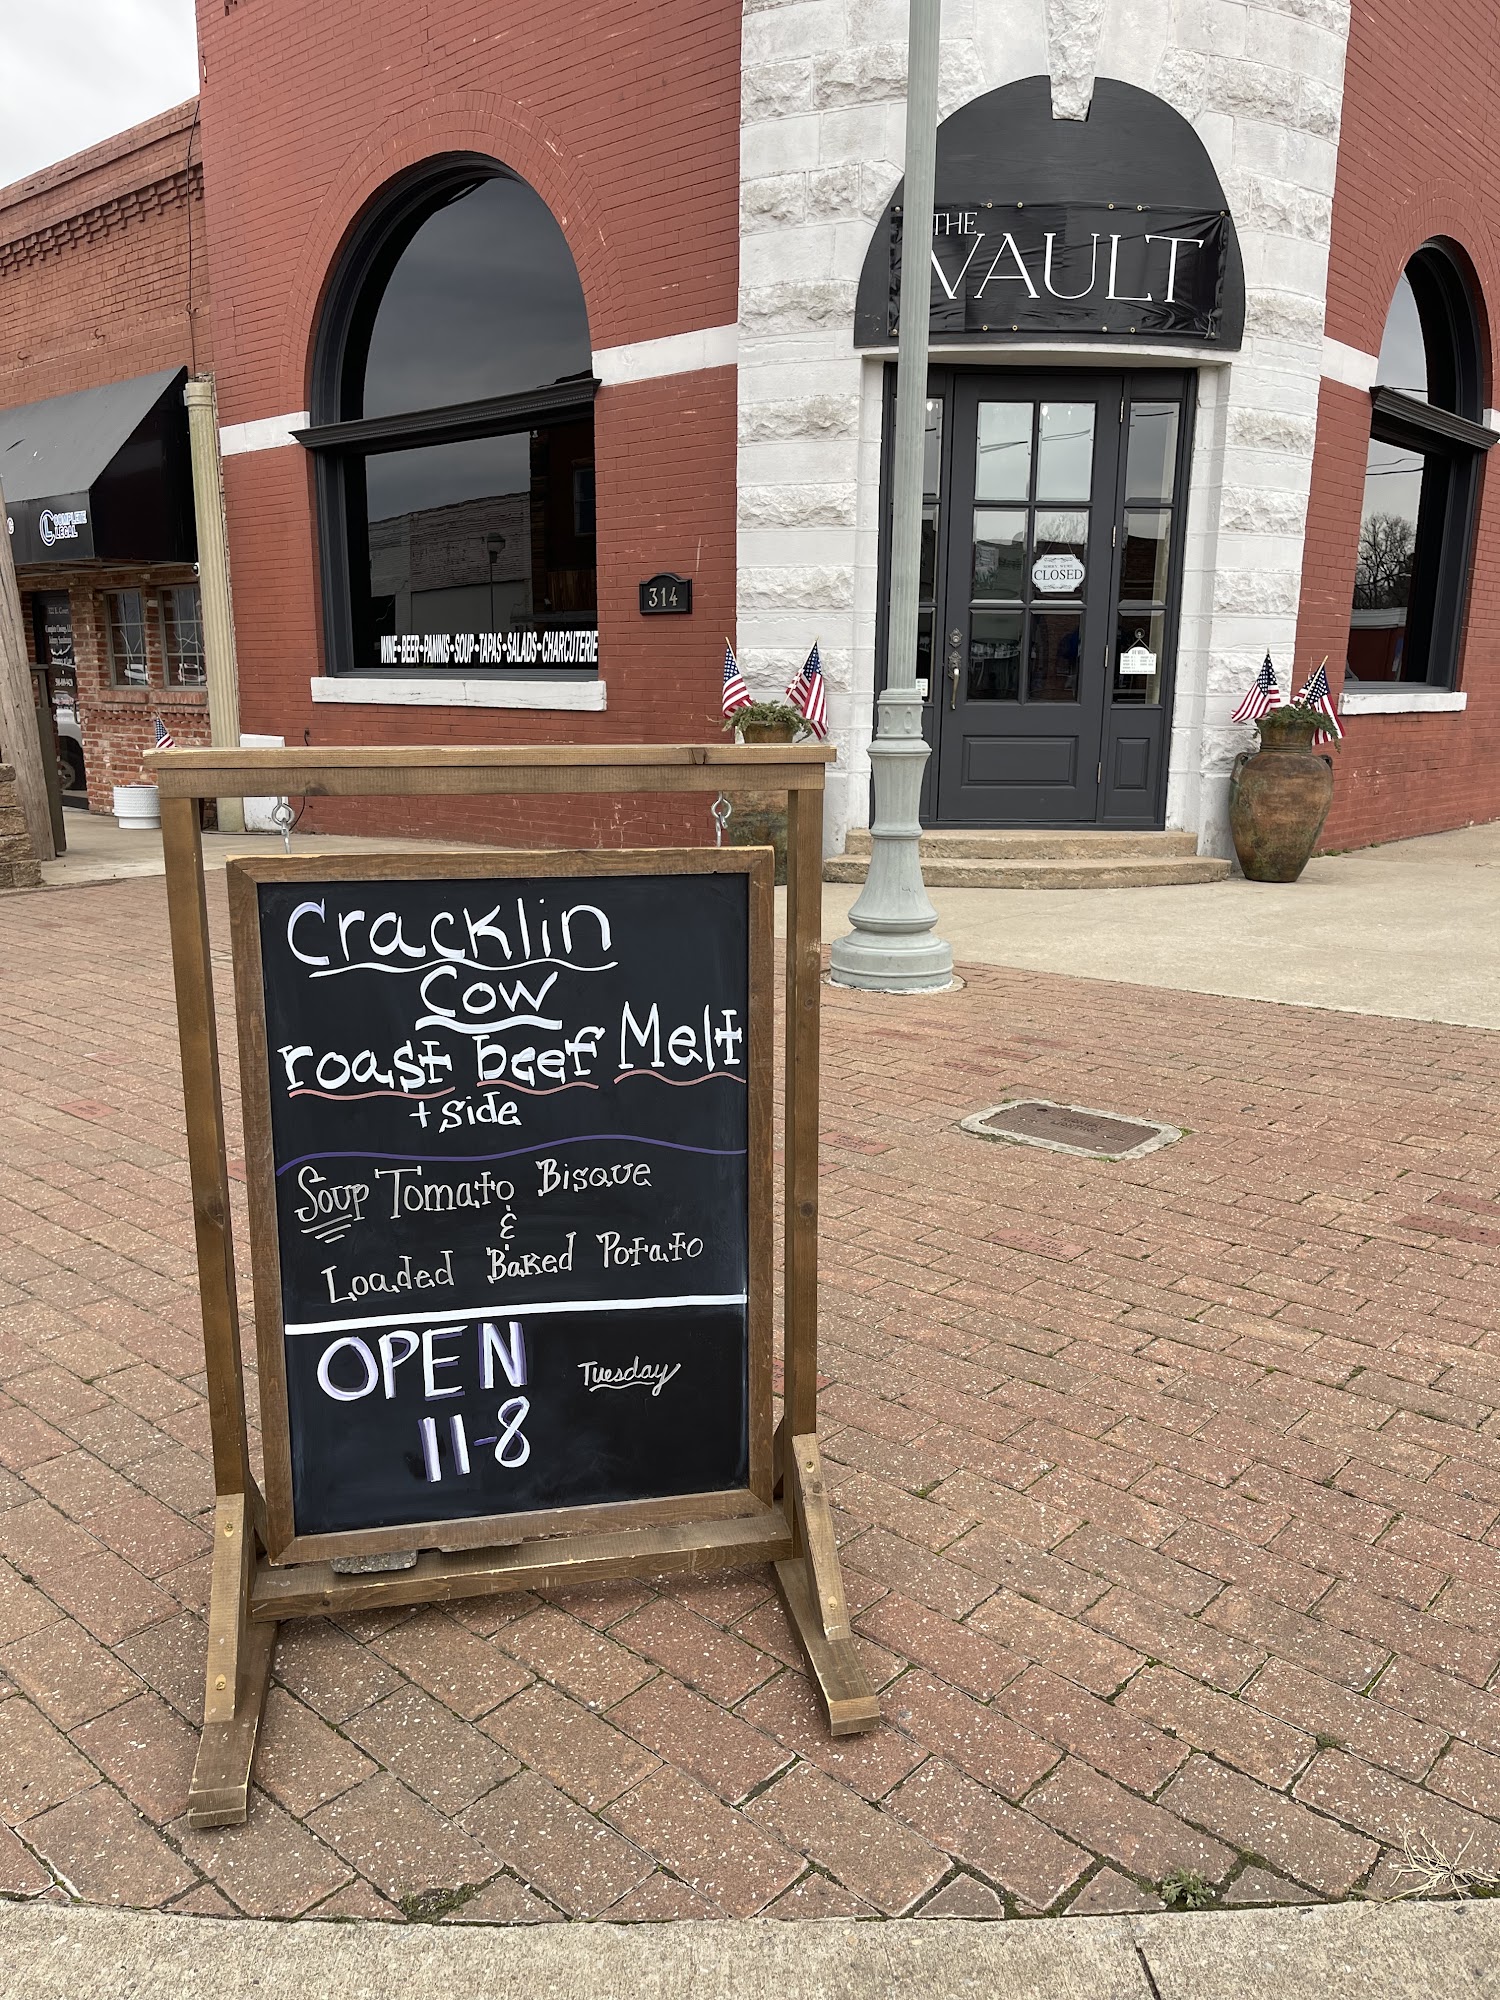 THE
VAULT
COMPLETE
LEGAL
CLOSED
314
WINE•BEER•PANINIS•SOUP•TAPAS•SALADS•CHARCUTERIE
Cracklin
Cow
roast beef Melt
+ side
Soup Tomato Bisque
&
Loaded Baked Potato
OPEN
Tuesday
11-8